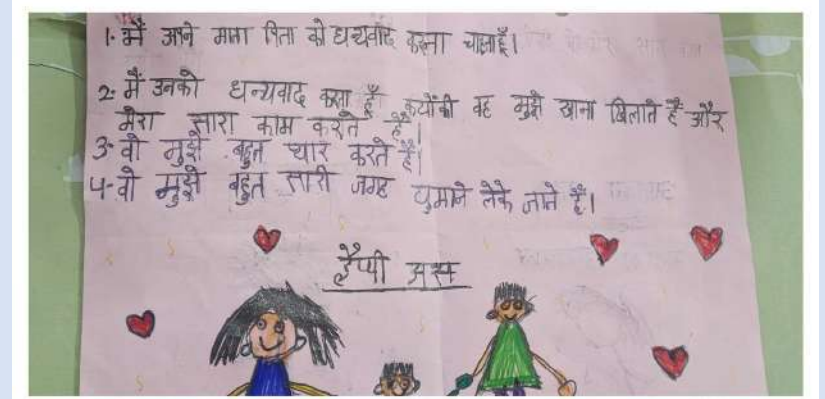 1. मैं अपने माता पिता को धन्यवाद करना चाहता हूँ।
2. मैं उनको धन्यवाद करता हूँ क्योंकी वह मुझे खाना खिलाते हैं और
मेरा सारा काम करते हैं।
3. वो मुझे बहुत प्यार करते हैं।
4. वो मुझे बहुत सारी जगह घुमाने लेके जाते हैं।
हैप्पी अस